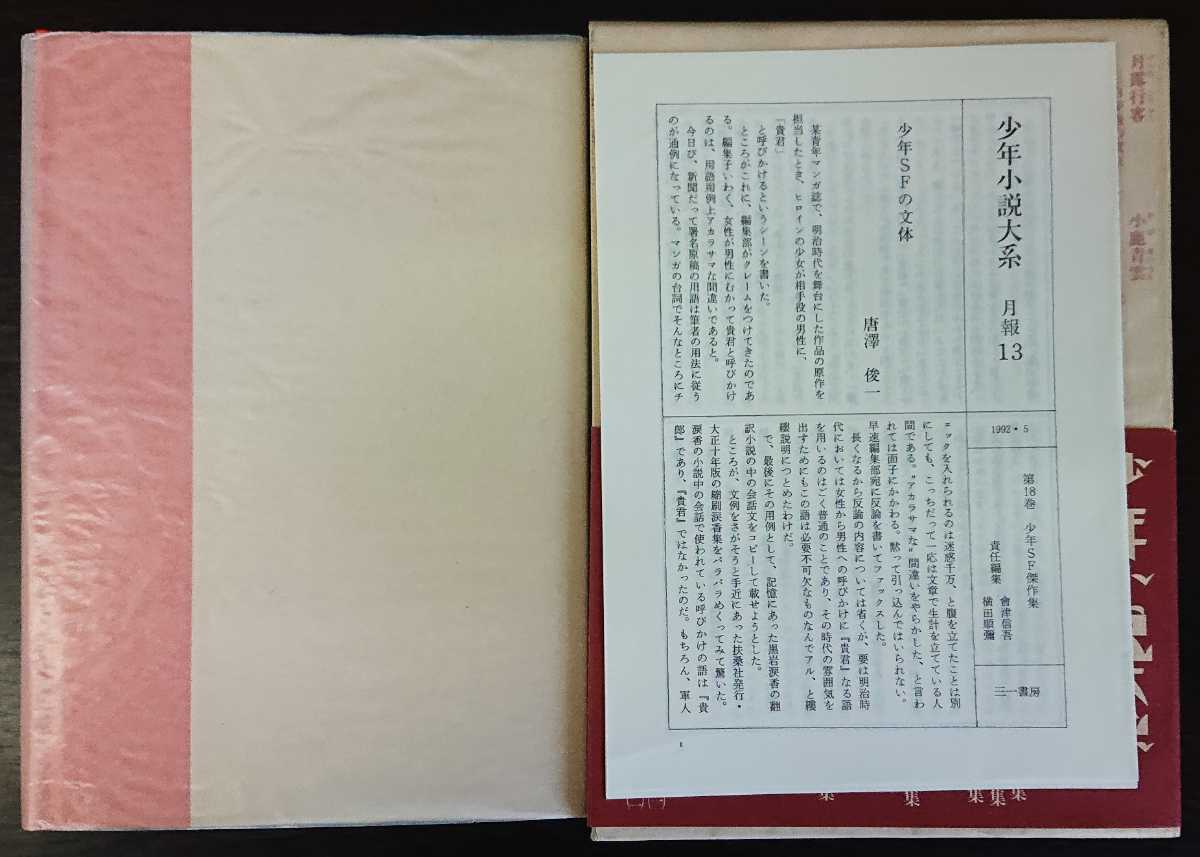 少年小説大系　月報13
1992・5
第18巻　少年SF傑作集
責任編集　會津信吾
横田順彌
三一書房
少年SFの文体
唐澤　俊一
某青年マンガ誌で、明治時代を舞台にした作品の原作を
担当したとき、ヒロインの少女が相手役の男性に、
「貴君」
と呼びかけるというシーンを書いた。
ところがこれに、編集部がクレームをつけてきたのであ
る。編集子いわく、女性が男性にむかって貴君と呼びかけ
るのは、用語用例上アカラサマな間違いであると。
今日び、新聞だって署名原稿の用語は筆者の用法に従う
のが通例になっている。マンガの台詞でそんなところにチ
ェックを入れられるのは迷惑千万、と腹を立てたことは別
にしても、こっちだって一応は文章で生計を立てている人
間である。"アカラサマな"間違いをやらかした、と言わ
れては面子にかかわる。黙って引っ込んではいられない。
早速編集部宛に反論を書いてファックスした。
長くなるから反論の内容については省くが、要は明治時
代においては女性から男性への呼びかけに『貴君』なる語
を用いるのはごく普通のことであり、その時代の雰囲気を
出すためにもこの語は必要不可欠なものなんでアル、と縷
縷説明につとめたわけだ。
で、最後にその用例として、記憶にあった黒岩涙香の翻
訳小説の中の会話文をコピーして載せようとした。
ところが、文例をさがそうと手近にあった扶桑社発行・
大正十年版の縮刷涙香集をパラパラめくってみて驚いた。
涙香の小説中の会話で使われている呼びかけの語は『貴
郎』であり、『貴君』ではなかったのだ。もちろん、軍人
1
月露行客
小鹿青雲
集
集
集
集
集